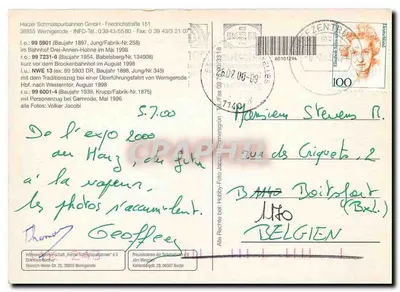 Harzer Schmalspurbahnen GmbH - Friedrichstraße 151
38855 Wernigerode - INFO-Tel.: 0 39 43/5 58-0 Fax: 0 39 43/2 21 07
l.o.: 99 5901 (Baujahr 1897, Jung/Fabrik-Nr. 258)
im Bahnhof Drei-Annen-Hohne im Mai 1996
r.o.: 99 7231-6 (Baujahr 1954, Babelsberg/Nr. 134008)
vor dem Bahnhof Brocken im August 1998
l.u.: NWE 13 (ex 99 5903 DR, Baujahr 1898, Jung/Fabrik-Nr. 345)
mit dem Traditionszug bei einer Überführungsfahrt im
Hbf. nach Westerntor, August 1998
r.u.: 99 6001-4 (Baujahr 1939, Fabrik-Nr. 1875)
mit Personenzug bei Gernrode, Mai 1996
alle Fotos: Volker Jacobi
5.7.00
De l'expo 2000
au Harz, du futur
à la vapeur,
les photos s'accumulent.
Geoffrey
Thomas
Alle Rechte bei: Hobby-Foto Jacobi
60101294
26.07.00-09
11491
100
Monsieur Stevens M.
rue des Criquets, 2
B Boitsfort
1170
(Bxl.)
BELGIEN